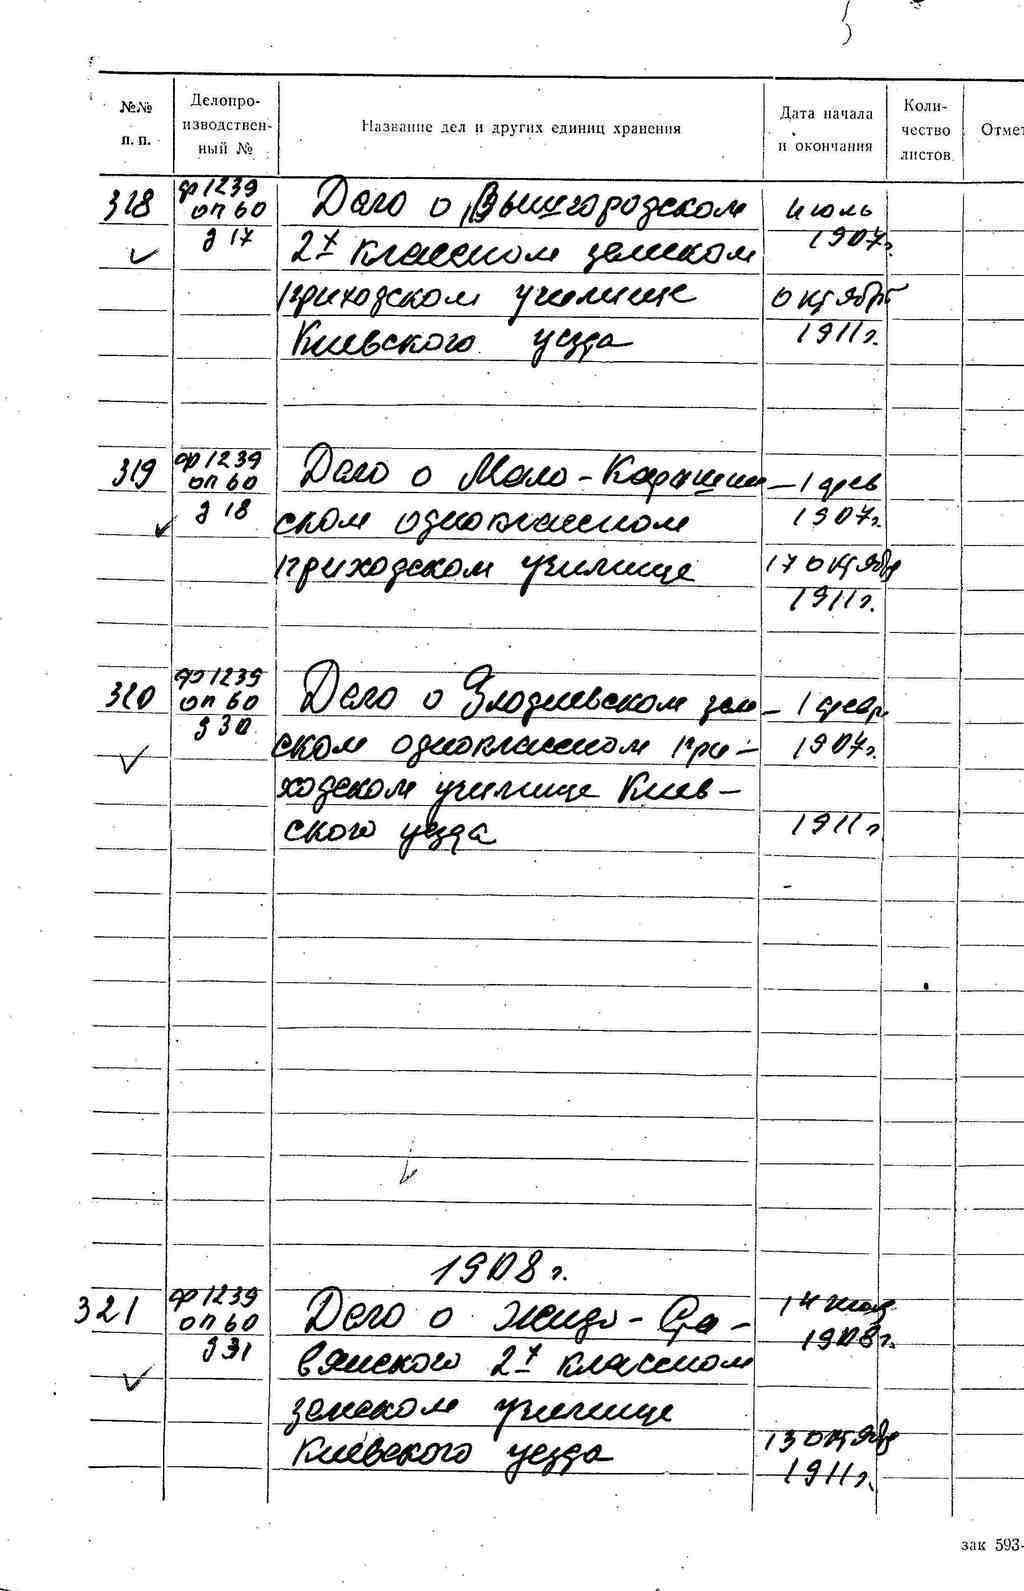 №№ п. п.
Делопроизводственный №
Название дел и других единиц хранения
Дата начала и окончания
Количество листов
Отмет
318
ф 1239
оп 60
д 17
Дело о Вышгородском
2х классном земском
приходском училище
Киевского уезда
июль
1907г.
октябрь
1911г.
319
ф 1239
оп 60
д 18
Дело о Мало-Каратин
ском одноклассном
приходском училище
1 фев
1907г.
17 октября
1911г.
320
ф 1239
оп 60
д 30
Дело о Злодиевском зем
ском одноклассном при-
ходском училище Киев-
ского уезда
1 февр
1907г.
1911г
1908 г.
321
ф 1239
оп 60
д 31
Дело о Жидо-Гра-
вянского 2х классном
земском училище
Киевского уезда
14
1908г.
13 октября
1911г.
зак 593-